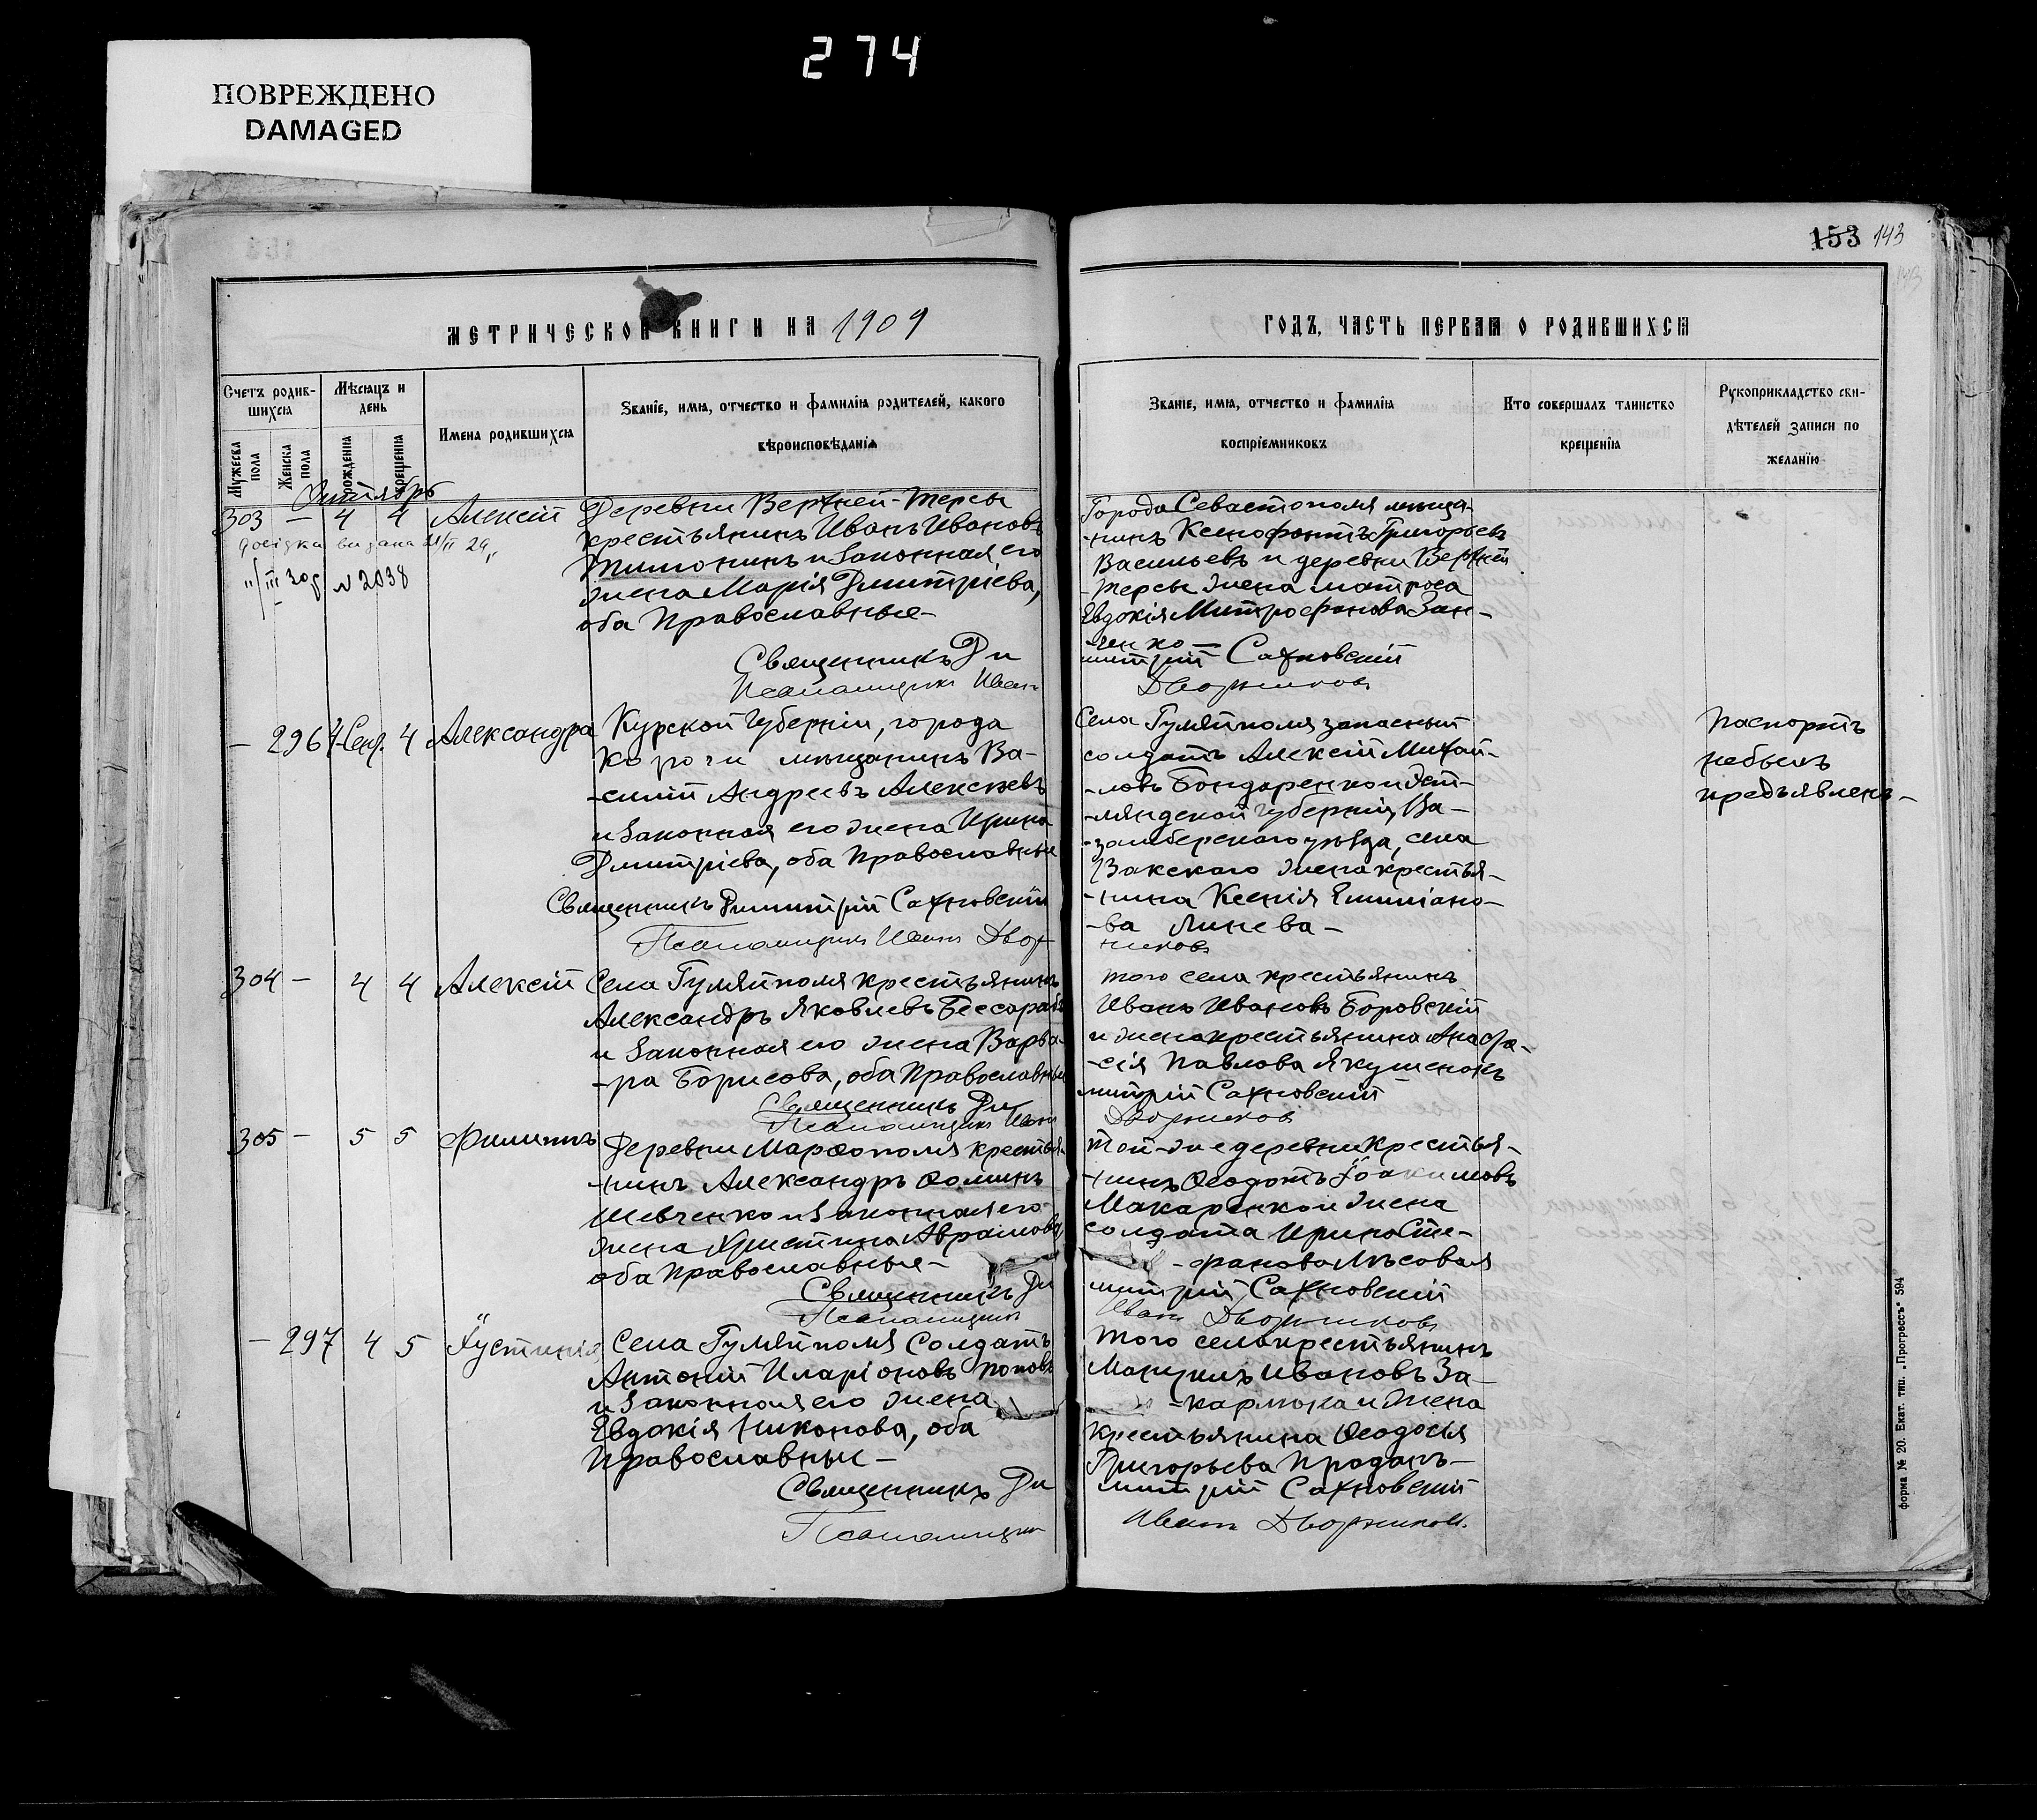 274
ПОВРЕЖДЕНО
DAMAGED
153 143
МЕТРИЧЕСКОЙ КНИГИ НА 1909
ГОДЪ, ЧАСТЬ ПЕРВАЯ О РОДИВШИХСЯ
Счетъ родив-
шихся
Мужеска пола
Женска пола
Мѣсяцъ и
день
рожденія
крещенія
Имена родившихся
Званіе, имя, отчество и фамилія родителей, какого
вѣроисповѣданія
Званіе, имя, отчество и фамилія
воспріемниковъ
Кто совершалъ таинство
крещенія
Рукоприкладство сви-
дѣтелей записи по
желанію
Октябрь
303 — 4 4 Алексій
досідка видана 21/II 29
"/III 30 р. № 2038
Деревни Верхней-Терсы
крестьянинъ Иванъ Ивановъ
Тимонинъ и законная его
жена Марія Дмитріева,
оба Православные —
Города Севастополя мѣща-
-нинъ Ксенофонтъ Григорьевъ
Васильевъ и деревни Верхней
-Терсы жена матроса
Евдокія Митрофанова Зин-
-ченко —
Священникъ Димитрій Сахновскій
Псаломщикъ Иванъ Дворниковъ
— 296 4 Сен. 4 Александра
Курской губерніи, города
Корочи мѣщанинъ Ва-
-силій Андреевъ Алексѣевъ
и законная его жена Ирина
Дмитріева, оба Православные
Села Гуляйполя запасный
солдатъ Алексій Михай-
-ловъ Бондаренко и Эст-
-ляндской губерніи, Ва-
-замберскаго уѣзда, села
Вакскаго жена крестья-
-нина Ксенія Емиліано-
-ва Линева —
Паспортъ
небылъ
предъявленъ —
Священникъ Димитрій Сахновскій
Псаломщикъ Иванъ Дворниковъ
304 — 4 4 Алексій
Села Гуляйполя крестьянинъ
Александръ Яковлевъ Бессарабъ
и законная его жена Варва-
-ра Борисова, оба Православные
того села крестьянинъ
Иванъ Ивановъ Боровскій
и жена крестьянина Анаста-
-сія Павлова Якушенокъ
Священникъ Димитрій Сахновскій
Псаломщикъ Иванъ Дворниковъ
305 — 5 5 Филиппъ
Деревни Марфополя крестья-
-нинъ Александръ Ѳоминъ
Шевченко и законная его
жена Христина Аврамова,
оба Православные —
Той-же деревни крестья-
-нинъ Ѳеодотъ Іоакимовъ
Макаренко и жена
солдата Ирина Сте-
-фанова Лѣсовая
Священникъ Димитрій Сахновскій
Псаломщикъ Иванъ Дворниковъ
— 297 4 5 Іустинія
Села Гуляйполя Солдатъ
Антоній Иларіоновъ Поповъ
и законная его жена
Евдокія Никонова, оба
Православные —
Того села крестьянинъ
Мануилъ Ивановъ За-
-карлюка и жена
крестьянина Ѳеодосія
Григорьева Проданъ —
Священникъ Димитрій Сахновскій
Псаломщикъ Иванъ Дворниковъ.
форма № 20. Екат. тип. „Прогрессъ“ 594